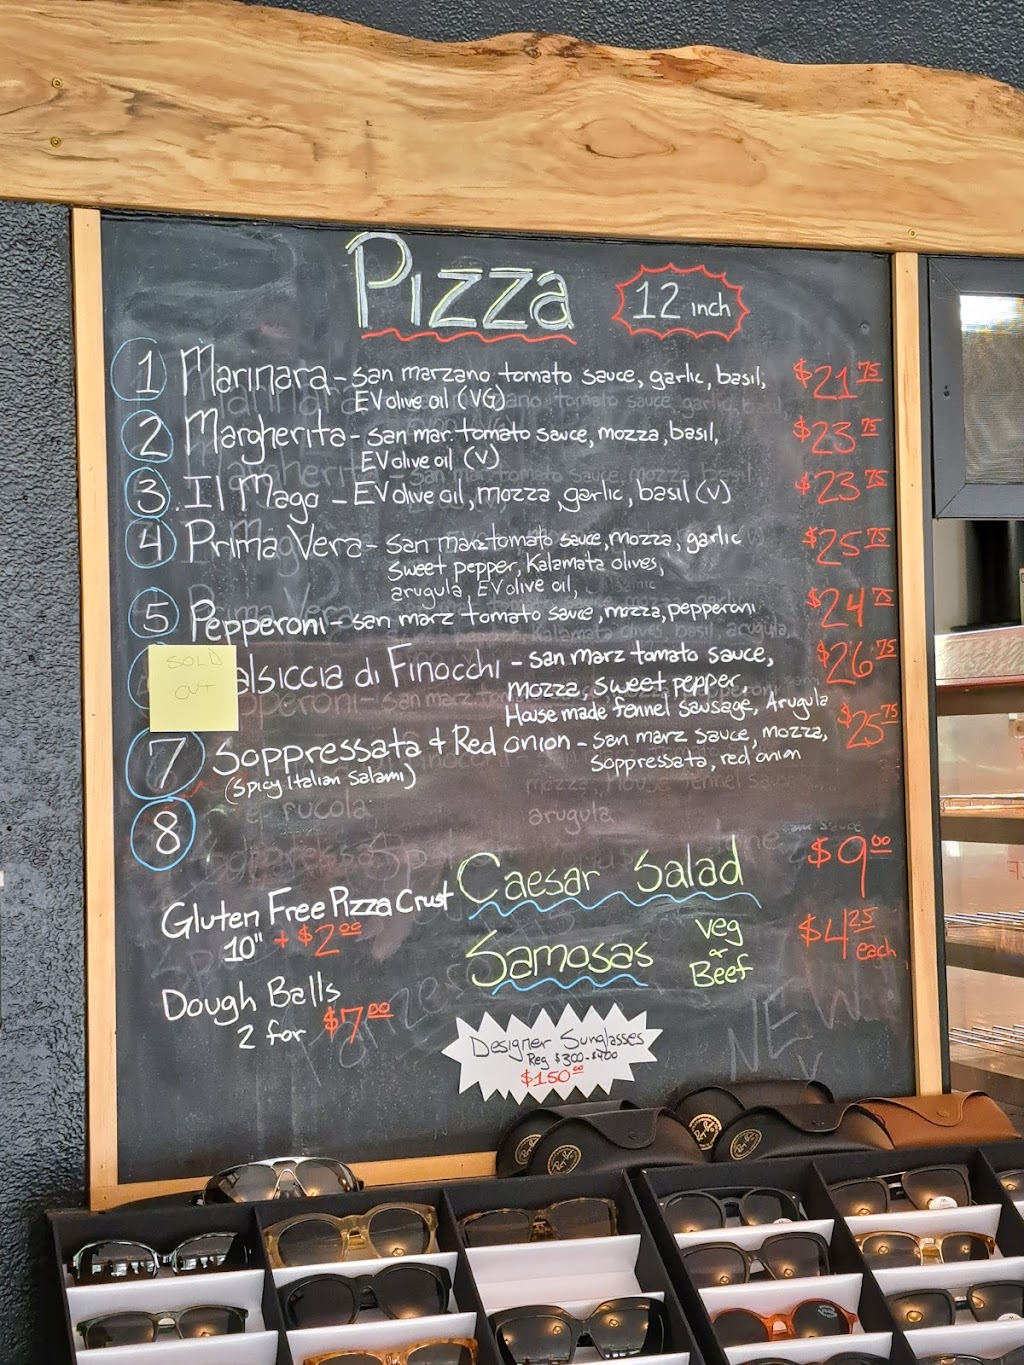 Pizza
12 inch
1 Marinara - san marzano tomato sauce, garlic, basil, $21.75
EV olive oil (VG)
2 Margherita - san mar. tomato sauce, mozza, basil, $23.75
EV olive oil (V)
3. Il Mago - EV olive oil, mozza, garlic, basil (V) $23.75
4 Prima Vera - San marz tomato sauce, mozza, garlic $25.75
Sweet pepper, Kalamata olives,
arugula, EV olive oil,
5 Pepperoni - san marz tomato sauce, mozza, pepperoni $24.75
SOLD
OUT
alsiccia di Finocchi - san marz tomato sauce, $26.75
mozza, sweet pepper,
House made fennel sausage, Arugula
7 Soppressata + Red onion - san marz sauce, mozza, $25.75
(Spicy Italian Salami) Soppressata, red onion
8
Caesar Salad $9.00
Gluten Free Pizza Crust
10" + $2.00
Samosas veg or Beef $4.25 each
Dough Balls
2 for $7.00
NEW
Designer Sunglasses
Reg $300-$400
$150.00